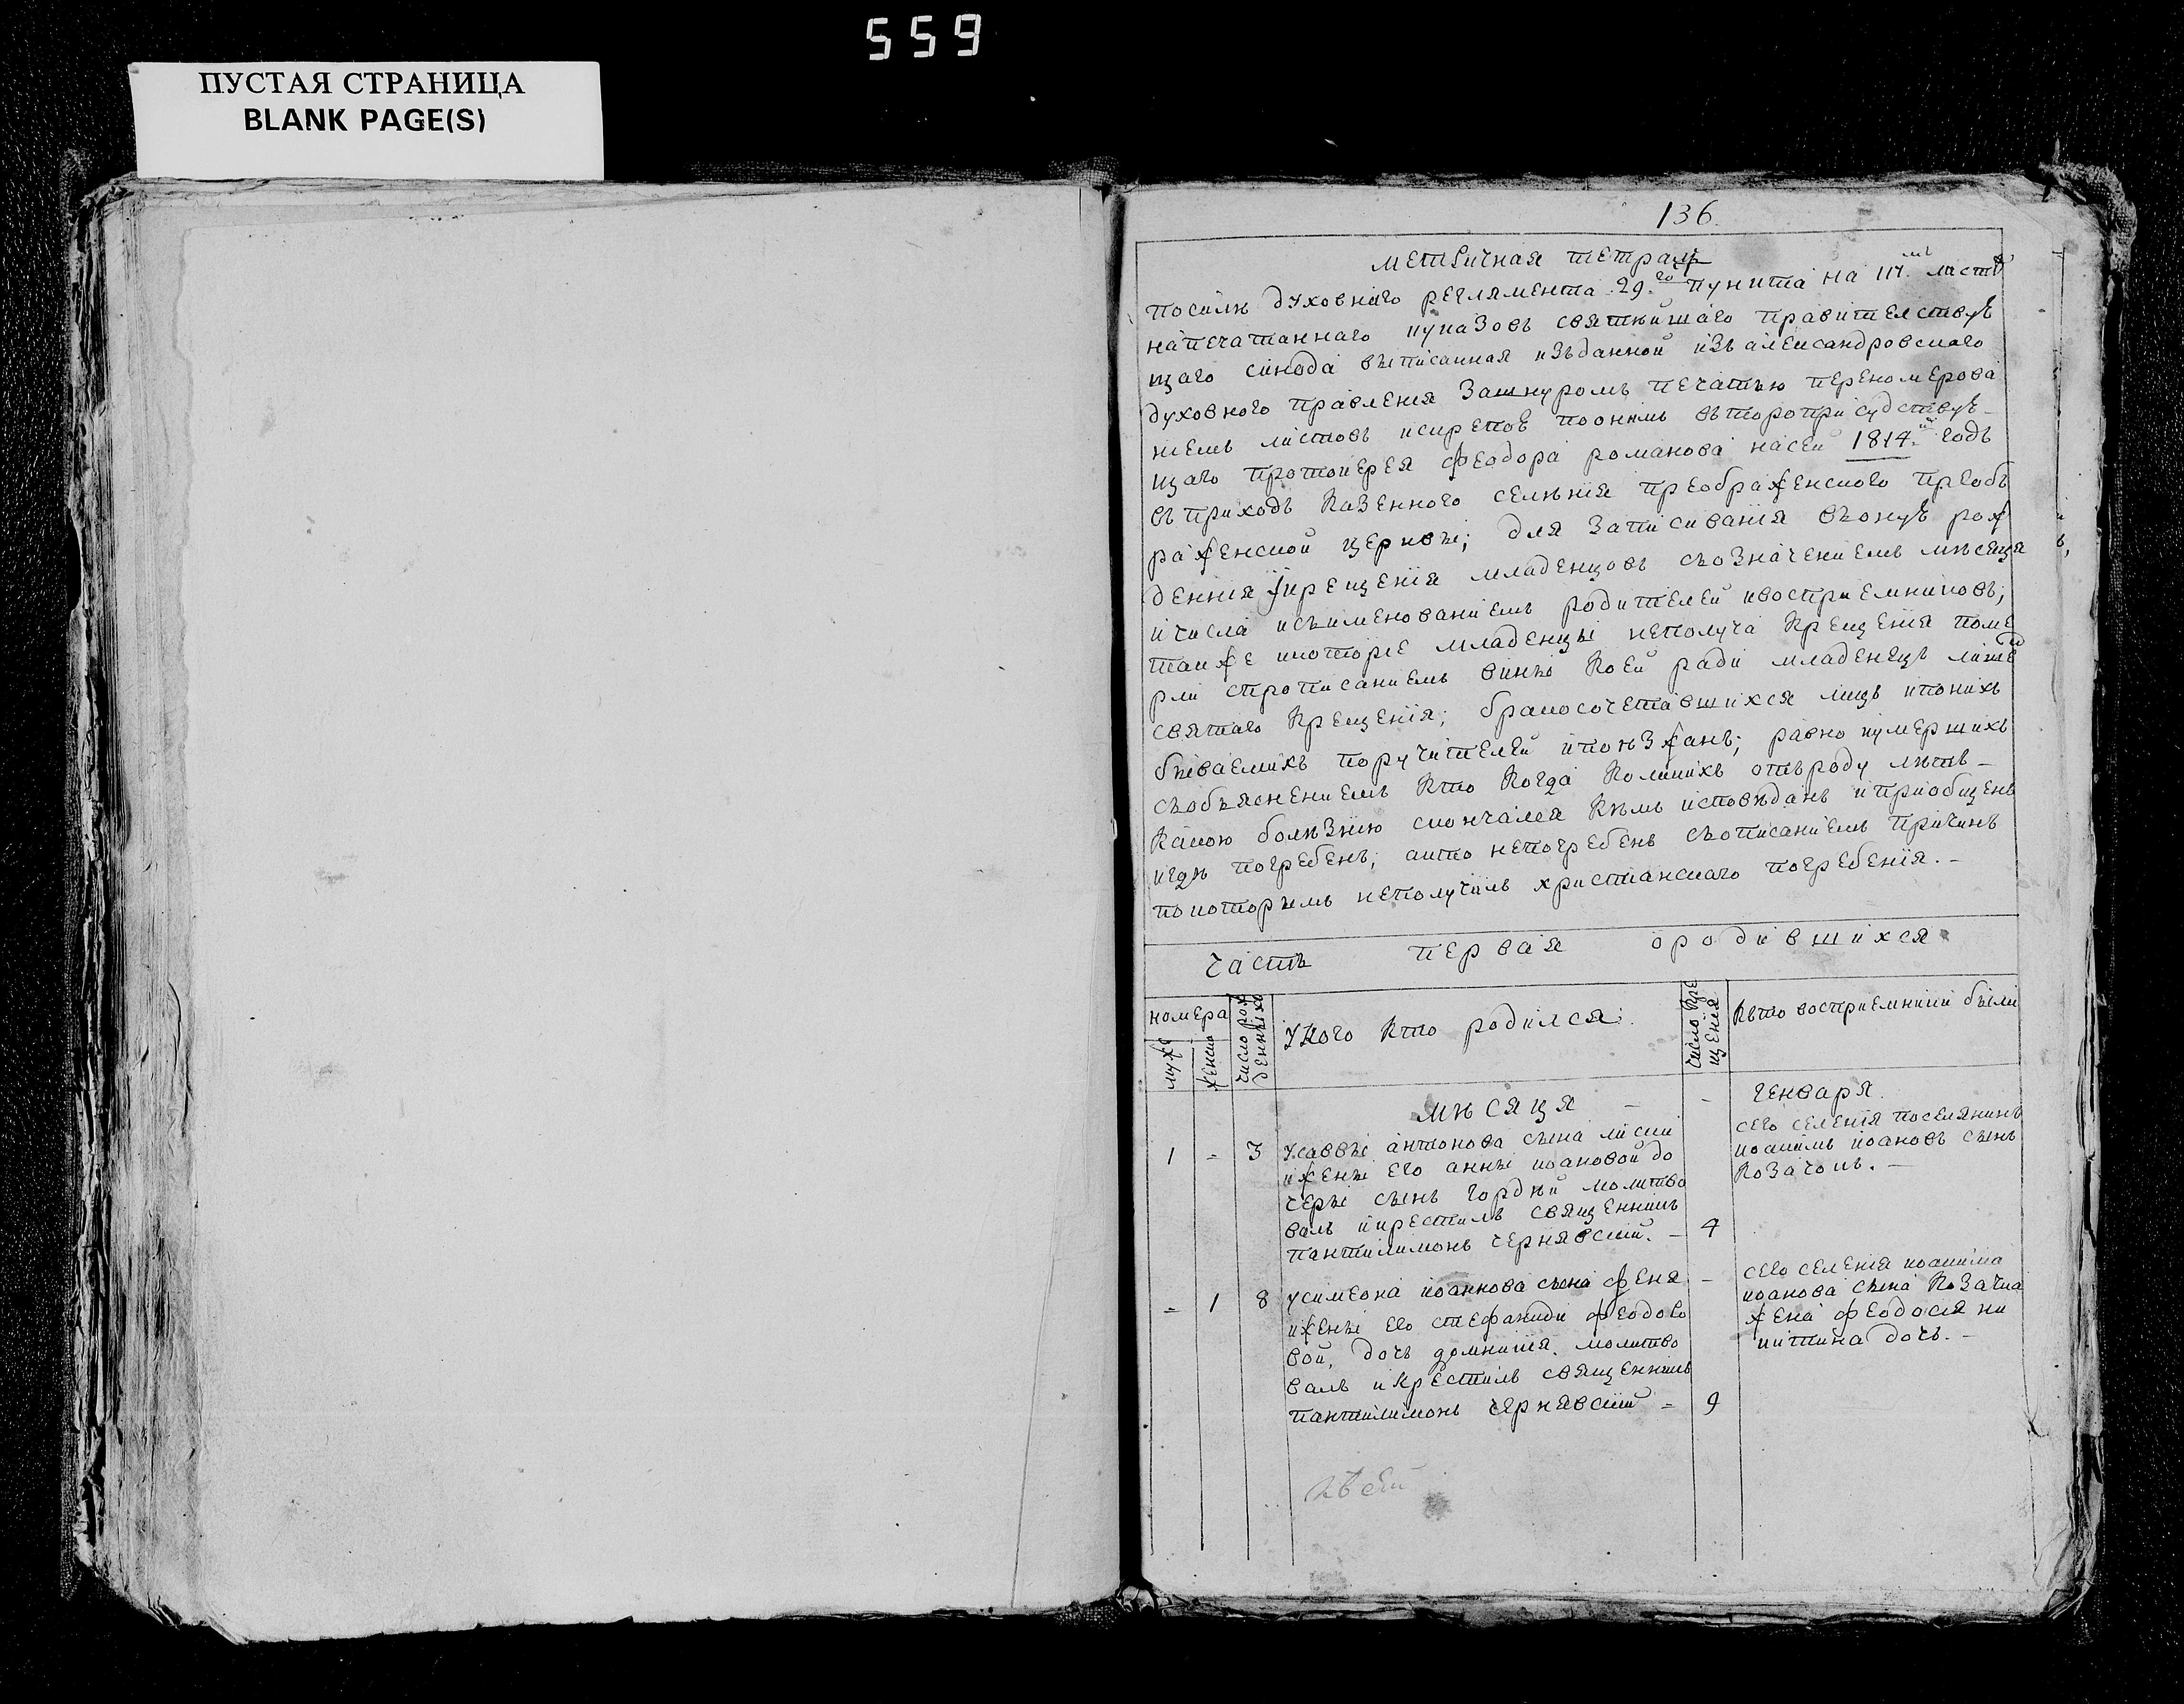 559
ПУСТАЯ СТРАНИЦА
BLANK PAGE(S)
136.
метричная тетрадь
посилѣ духовнаго регламента 29.го пункта на 117.мъ листѣ
напечатаннаго иуказовъ святѣишаго правителствую
щаго синода выписанная изъданной изъ александровскаго
духовного правленія зашнуромъ печатью переномерова
ніемъ листовъ искрепою поонимъ въторопрісудствую-
щаго протоиерея феодора романова насей 1814.й годъ
въ приходъ казенного селѣнія преображенского преоб
раженской церквы; для записиванія въоную рож
денія икрещенія младенцовъ съозначениемъ мѣсяця
и числа исъименованіемъ родителей ивосприемниковъ;
также икоторіе младенцы неполуча крещенія поме
рли спрописаниемъ вины коей ради младенецъ лише
святаго крещенія; бракосочетавшихся лицъ ипонихъ
бываемихъ поручителей ипоѣзжанъ; равно иумершихъ
съобъяснениемъ кто когда коликихъ отъроду лѣтъ-
какою болѣзнію скончался кѣмъ исповѣданъ ипріобщенъ
игдѣ погребенъ; акто непогребенъ съописаниемъ причинъ
покоторымъ неполучилъ христианскаго погребенія.-
часть первая ородившихся
номера
муже
женско
число рож
денныхъ
укого кто родился:
число кре
щенія
кьто восприемники были
мѣсяця - - генваря.
1 - 3 усаввы антонова сына лисии
ижены его анны иоановой до
черы сынъ гордѣй молитво
валъ икрестилъ священникъ
пантилимонъ чернявскій. - 4
сего селенія поселянинъ
иоакимъ иоановъ сынъ
козачокъ.-
- 1 8 усимеона иоаннова сына феня -
ижены его стефаниди феодосо
вой, дочь домникія. молитво
валъ и крестилъ священникъ
пантилимонъ чернявскій - 9
сего селенія иоакима
иоанова сына козачка
жена феодосія ни
китина дочь.-